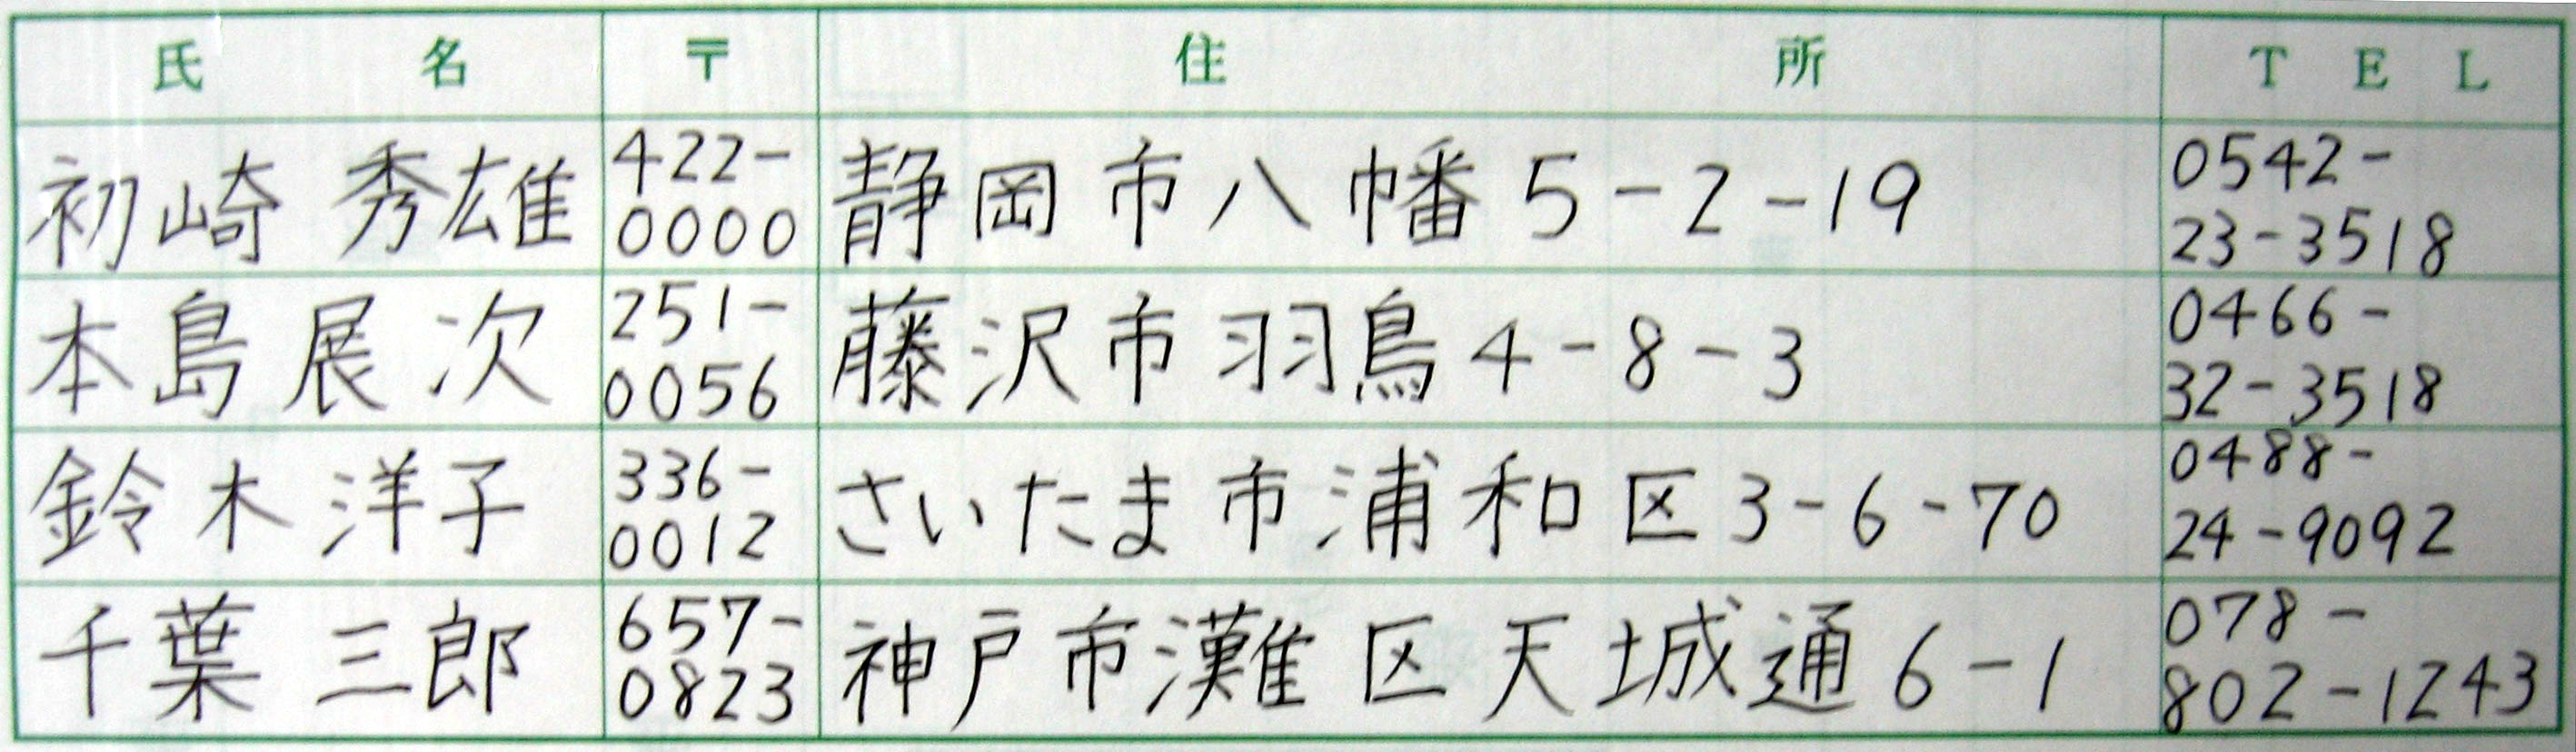 氏 名 〒 住 所 TEL
初崎 秀雄 422-0000 静岡市八幡5-2-19 0542-23-3518
本島展次 251-0056 藤沢市羽鳥4-8-3 0466-32-3518
鈴木洋子 336-0012 さいたま市浦和区3-6-70 0488-24-9092
千葉三郎 657-0823 神戸市灘区天城通6-1 078-802-1243